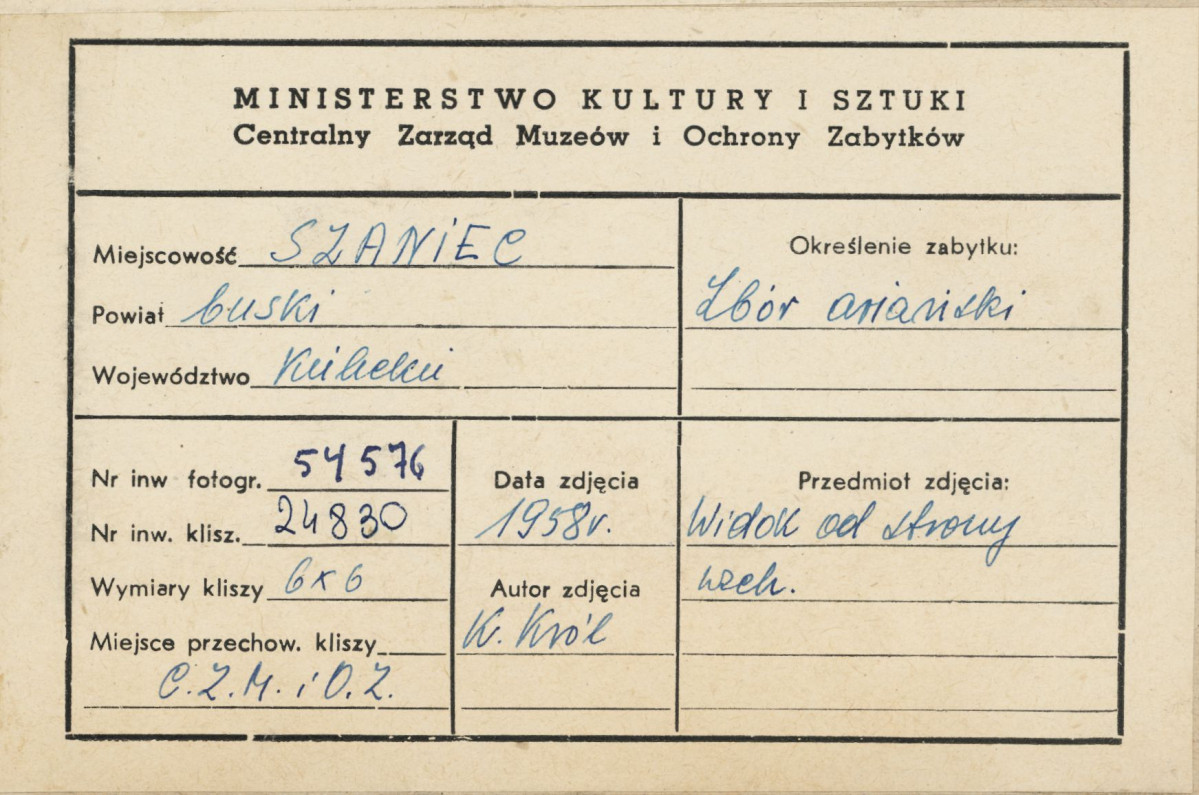 MINISTERSTWO KULTURY I SZTUKI
Centralny Zarząd Muzeów i Ochrony Zabytków
Miejscowość SZANIEC
Powiat buski
Województwo Kieleckie
Określenie zabytku:
Zbór ariański
Nr inw fotogr. 54576
Nr inw. klisz. 24830
Wymiary kliszy 6x6
Miejsce przechow. kliszy
C.Z.M. i O.Z.
Data zdjęcia
1958r.
Autor zdjęcia
K. Król
Przedmiot zdjęcia:
Widok od strony
wsch.